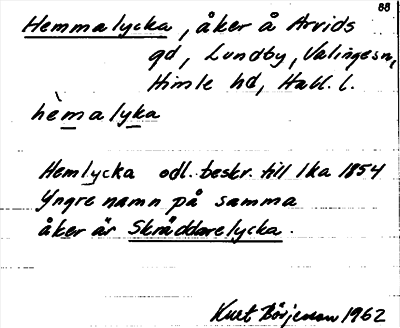 88
Hemmalycka, åker å Arvids
gd, Lundby, Valingesn,
Himle hd, Hall. l.
hèmalyka
Hemlycka odl. beskr. till lka 1854
Yngre namn på samma
åker är Skräddarelycka.
Kurt Börjesson 1962